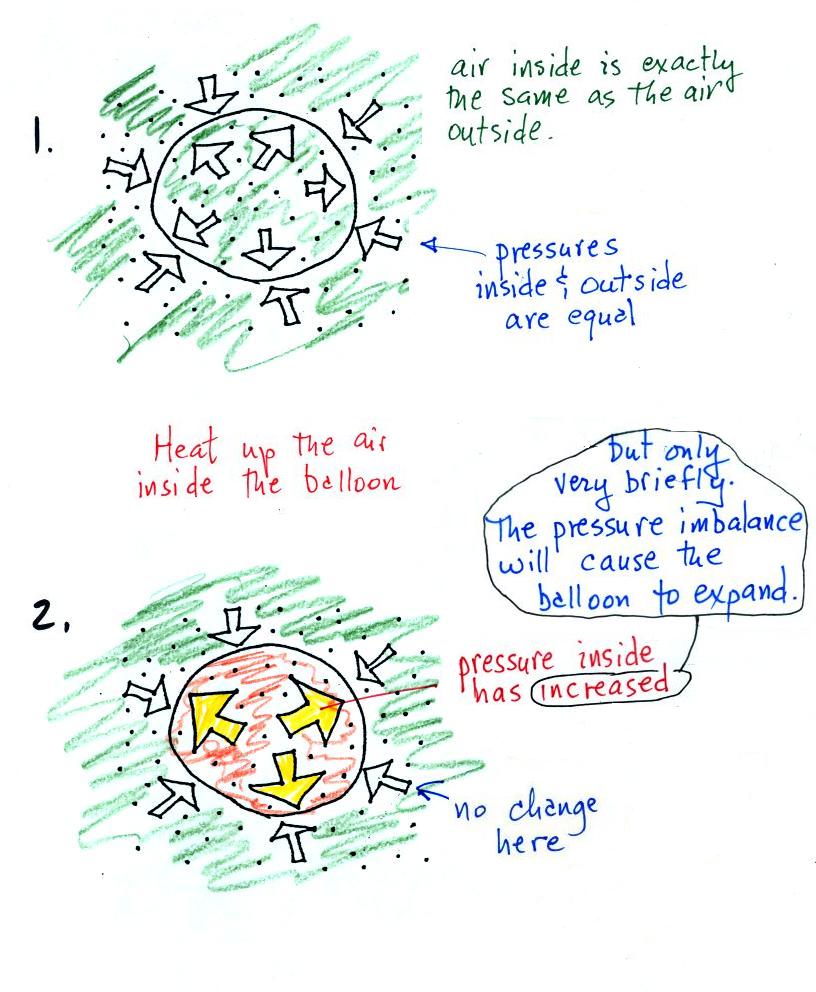 1.
air inside is exactly
the same as the air
outside.
pressures
inside & outside
are equal
Heat up the air
inside the balloon
but only
very briefly.
The pressure imbalance
will cause the
balloon to expand.
2.
pressure inside
has increased
no change
here